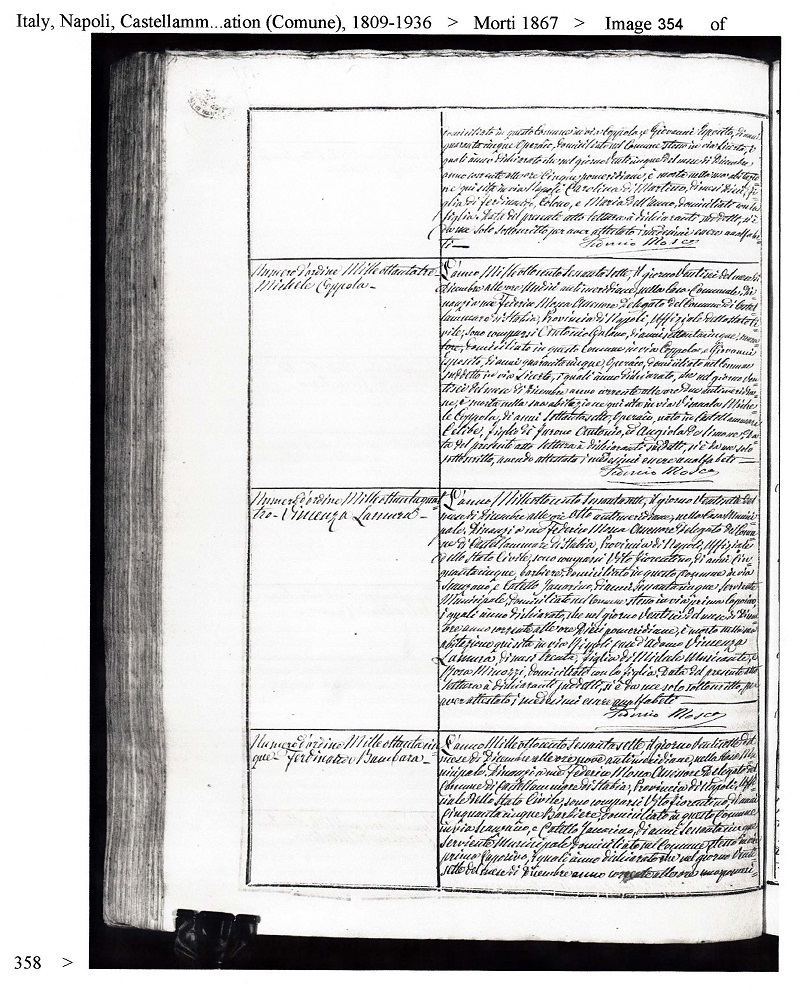 Italy, Napoli, Castellamm...ation (Comune), 1809-1936 > Morti 1867 > Image 354 of
conciliato in questo Comune in via Coppola, e Giovanni Esposito, di anni
quarantacinque Operaio, domiciliato nel Comune stesso in via
quali ànno dichiarato che nel giorno venticinque del mese di Dicembre
anno corrente alle ore cinque pomeridiane, è morta nella sua abitazio=
ne qui sita in via Napoli Carolina di Martino, di mesi dieci, fi=
glia di Ferdinando, e Maria dell'Anno, domiciliati con la
figlia. Data del presente atto lettura à dichiaranti suddetti, si è
da me solo sottoscritto per aver attestato i medesimi essere analfabe=
ti—
Federico Mosca
Numero d'ordine Mille ottantatre
Michele Coppola—
L'anno Mille ottocento sessantasette, il giorno Ventisei del mese di
Dicembre alle ore Undici antimeridiane, nella Casa Comunale, Di=
nanzi a me Federico Mosca Assessore delegato del Comune di Castel=
lammare di Stabia, Provincia di Napoli, Uffiziale dello Stato Ci=
vile, sono comparsi Antonio di anni settantacinque,
domiciliato in questo Comune in via Coppola, e Giovanni
Esposito, di anni quarantacinque, Operaio, domiciliato nel Comune
suddetto in via i quali ànno dichiarato, che nel giorno Ven=
tisei del mese di Dicembre anno corrente alle ore due antimeridia=
ne, è morto nella sua abitazione qui sita in via Michе=
le Coppola, di anni settantasette, Operaio, nato in Castellammare
Celibe, figlio di Antonio, ed Angiola de Simone. Da=
ta del presente atto lettura à dichiaranti suddetti, si è da me solo
sottoscritto, avendo attestato i medesimi essere analfabeti—
Federico Mosca
Numero d'ordine Mille ottantaquat=
tro— Vincenza Lamura—
L'anno Mille ottocento sessantasette, il giorno Ventisette del
mese di Dicembre alle ore Otto antimeridiane, nella Casa Munici=
pale, Dinanzi a me Federico Mosca Assessore delegato del Comu=
ne di Castellammare di Stabia, Provincia di Napoli, Uffiziale
dello Stato Civile, sono comparsi Vito Fiorentino, di anni Cin=
quantacinque, barbiere, domiciliato in questo Comune in via
Scanzano, e Catello Janorino, di anni sessantacinque Serviente
Municipale, domiciliato nel Comune stesso in via primo Caporivo,
i quali ànno dichiarato, che nel giorno Ventisei del mese di Dicem=
bre anno corrente alle ore Dieci pomeridiane, è morta nella sua
abitazione qui sita in via Vincenza
Lamura, di mesi trenta, figlia di Michele e
Rosa domiciliati con la figlia. Data del presente atto
lettura à dichiaranti suddetti, si è da me solo sottoscritto, per
aver attestato i medesimi essere analfabeti—
Federico Mosca
Numero d'ordine Mille ottantacin=
que— Ferdinando Bambara—
L'anno Mille ottocento sessantasette il giorno Ventisette del
mese di Dicembre alle ore nove antimeridiane, nella Casa Mu=
nicipale, Dinanzi a me Federico Mosca Assessore delegato del
Comune di Castellammare di Stabia, Provincia di Napoli, Uffi=
ziale dello Stato Civile, sono comparsi Vito Fiorentino, di anni
Cinquantacinque Barbiere, domiciliato in questo Comune
in via Scanzano, e Catello Janorino, di anni sessantacinque
Serviente Municipale domiciliato nel Comune stesso in via
primo Caporivo, i quali ànno dichiarato che nel giorno Venti=
sette del mese di Dicembre anno corrente alle ore una pomeri=
358 >